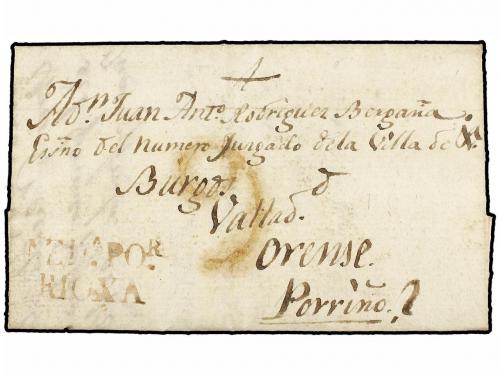 A Dn. Juan Anto. Rodriguez Bergaña.
Essno del Numero Juzgado dela Villa de
Burgos. d
Vallad.
Orense.
Porriño.
POR
RIOXA